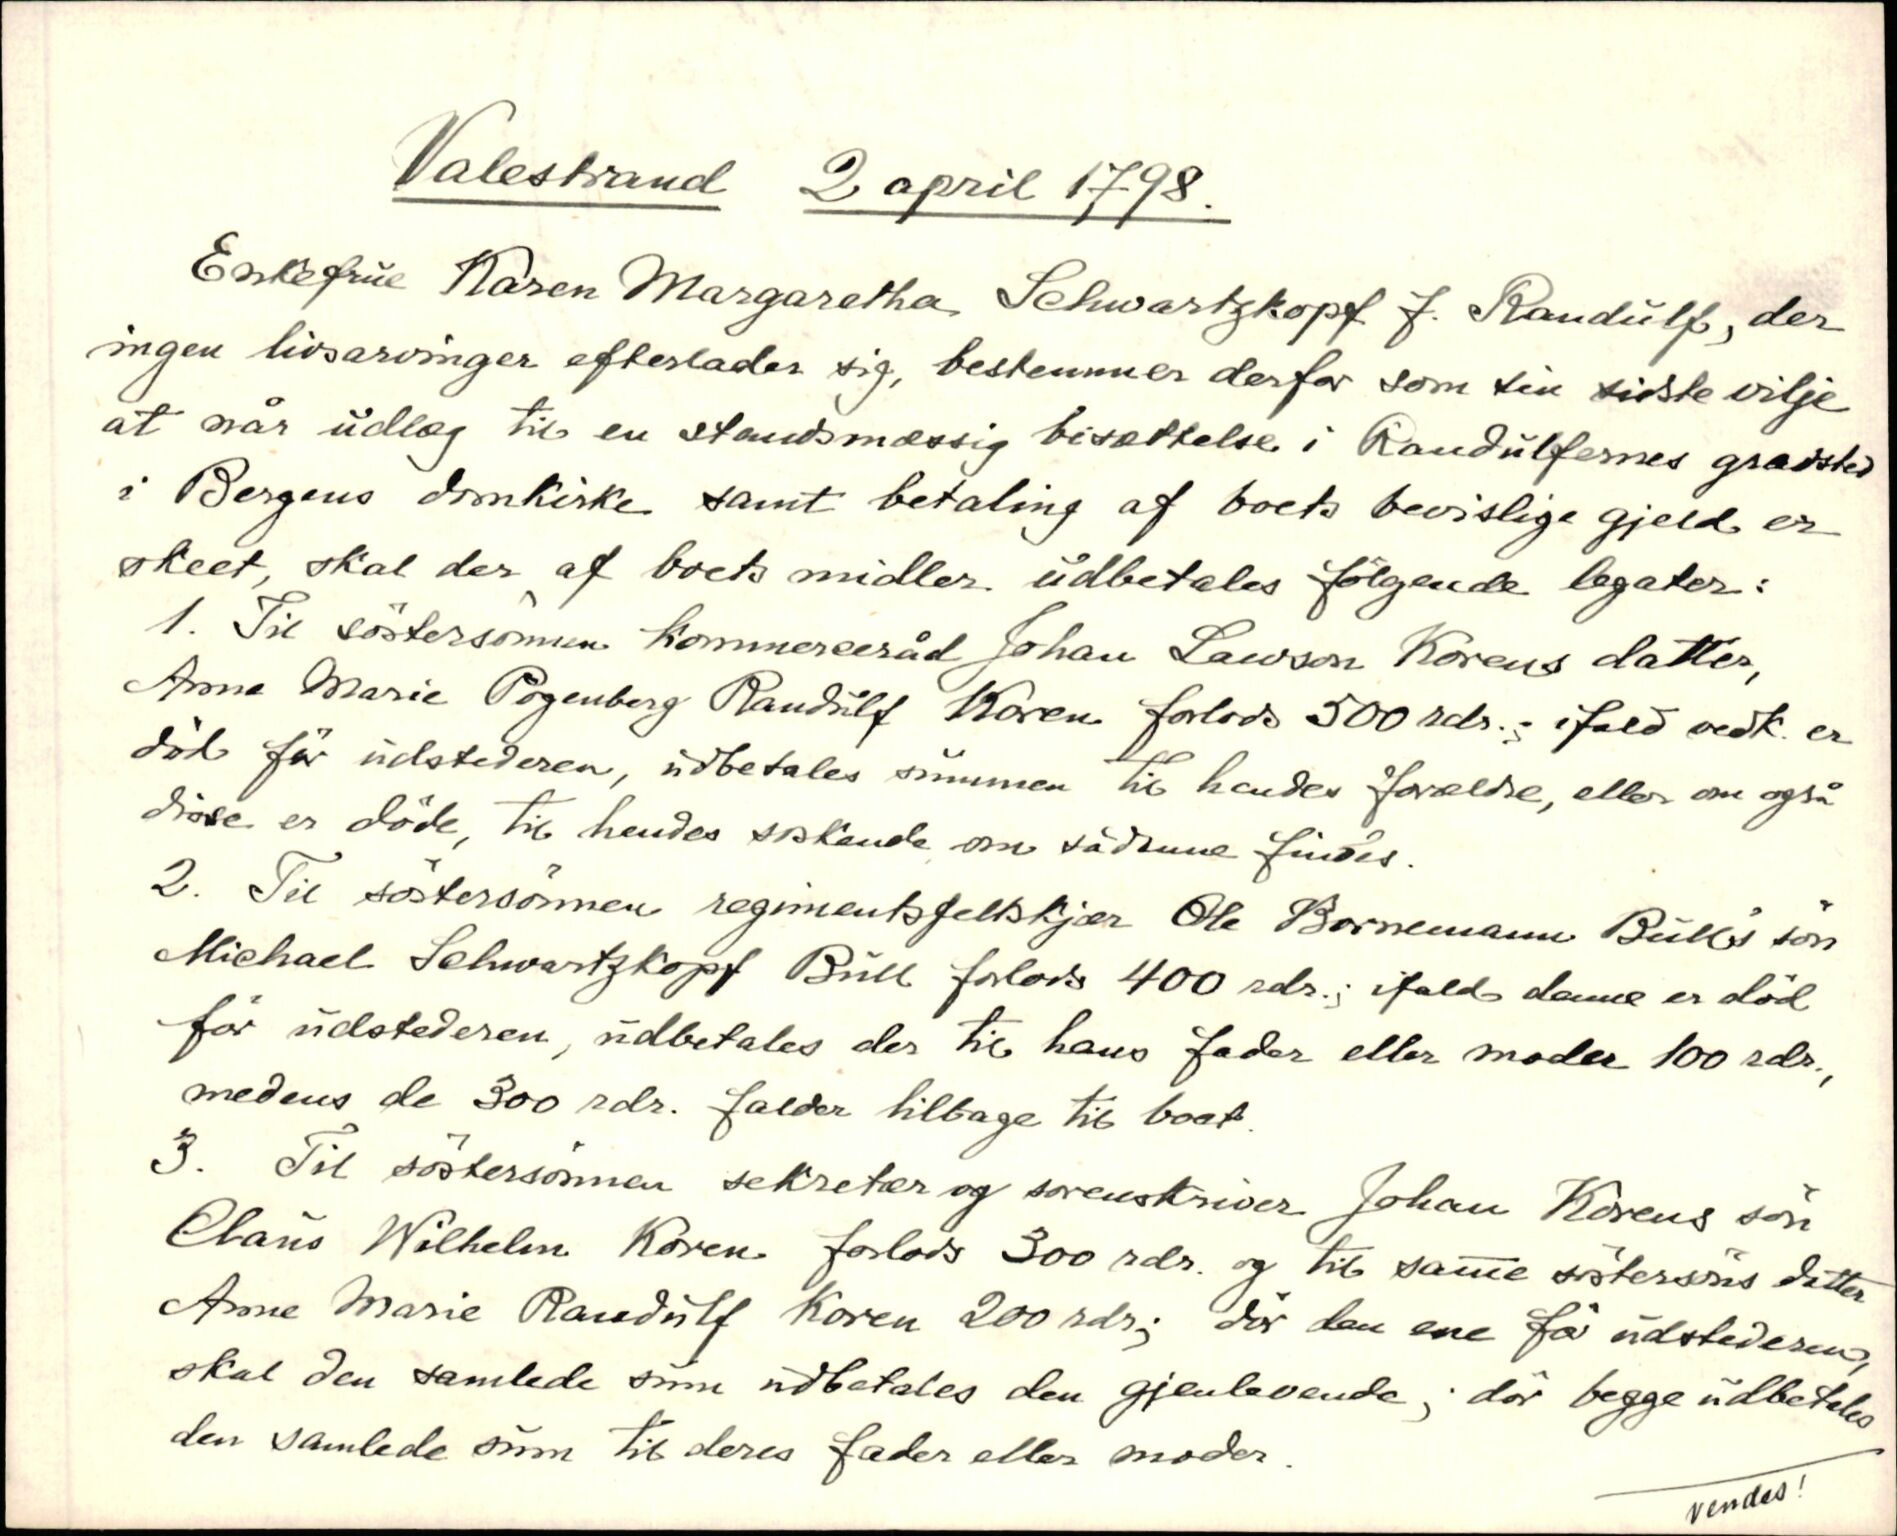 Valestrand 2 april 1798.
Enkefrue Karen Margaretha Schwartzkopf f. Randulf, der
ingen livsarvinger efterlader sig, bestemmer derfor som sin sidste vilje
at når udlæg til en standsmæssig bisættelse i Randulfernes gravsted
i Bergens domkirke samt betaling af boets bevislige gjeld er
skeet, skal der af boets midler udbetales fölgende legater:
1. Til söstersönnen kommerceråd Johan Lawson Korens datter,
Anne Marie Pogenberg Randulf Koren forlods 500 rdr.; ifald vedk. er
död för udstederen, udbetales summen til hendes forældre, eller om også
disse er döde, til hendes söskende om sådanne findes.
2. Til söstersönnen regimentsfeltskjær Ole Bornemann Bull's sön
Michael Schwartzkopf Bull forlods 400 rdr.; ifald denne er död
för udstederen, udbetales der til hans fader eller moder 100 rdr.,
medens de 300 rdr. falder tilbage til boet.
3. Til söstersönnen sekretær og sorenskriver Johan Korens sön
Claus Wilhelm Koren forlods 300 rdr. og til samme söstersöns datter
Anne Marie Randulf Koren 200 rdr; dör den ene för udstederen,
skal den samlede sum udbetales den gjenlevende; dör begge udbetales
den samlede sum til deres fader eller moder.
vendes!